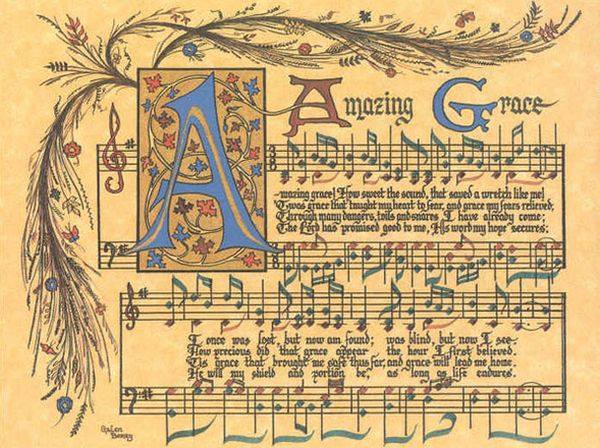 Amazing Grace
A-mazing grace! How sweet the sound, that saved a wretch like me!
'Twas grace that taught my heart to fear, and grace my fears relieved;
Through many dangers, toils and snares I have already come;
The Lord has promised good to me, His word my hope secures;
I once was lost, but now am found; was blind, but now I see-
How precious did that grace appear the hour I first believed.
'Tis grace that brought me safe thus far, and grace will lead me home.
He will my shield and portion be, as long as life endures.
Galen
Berry